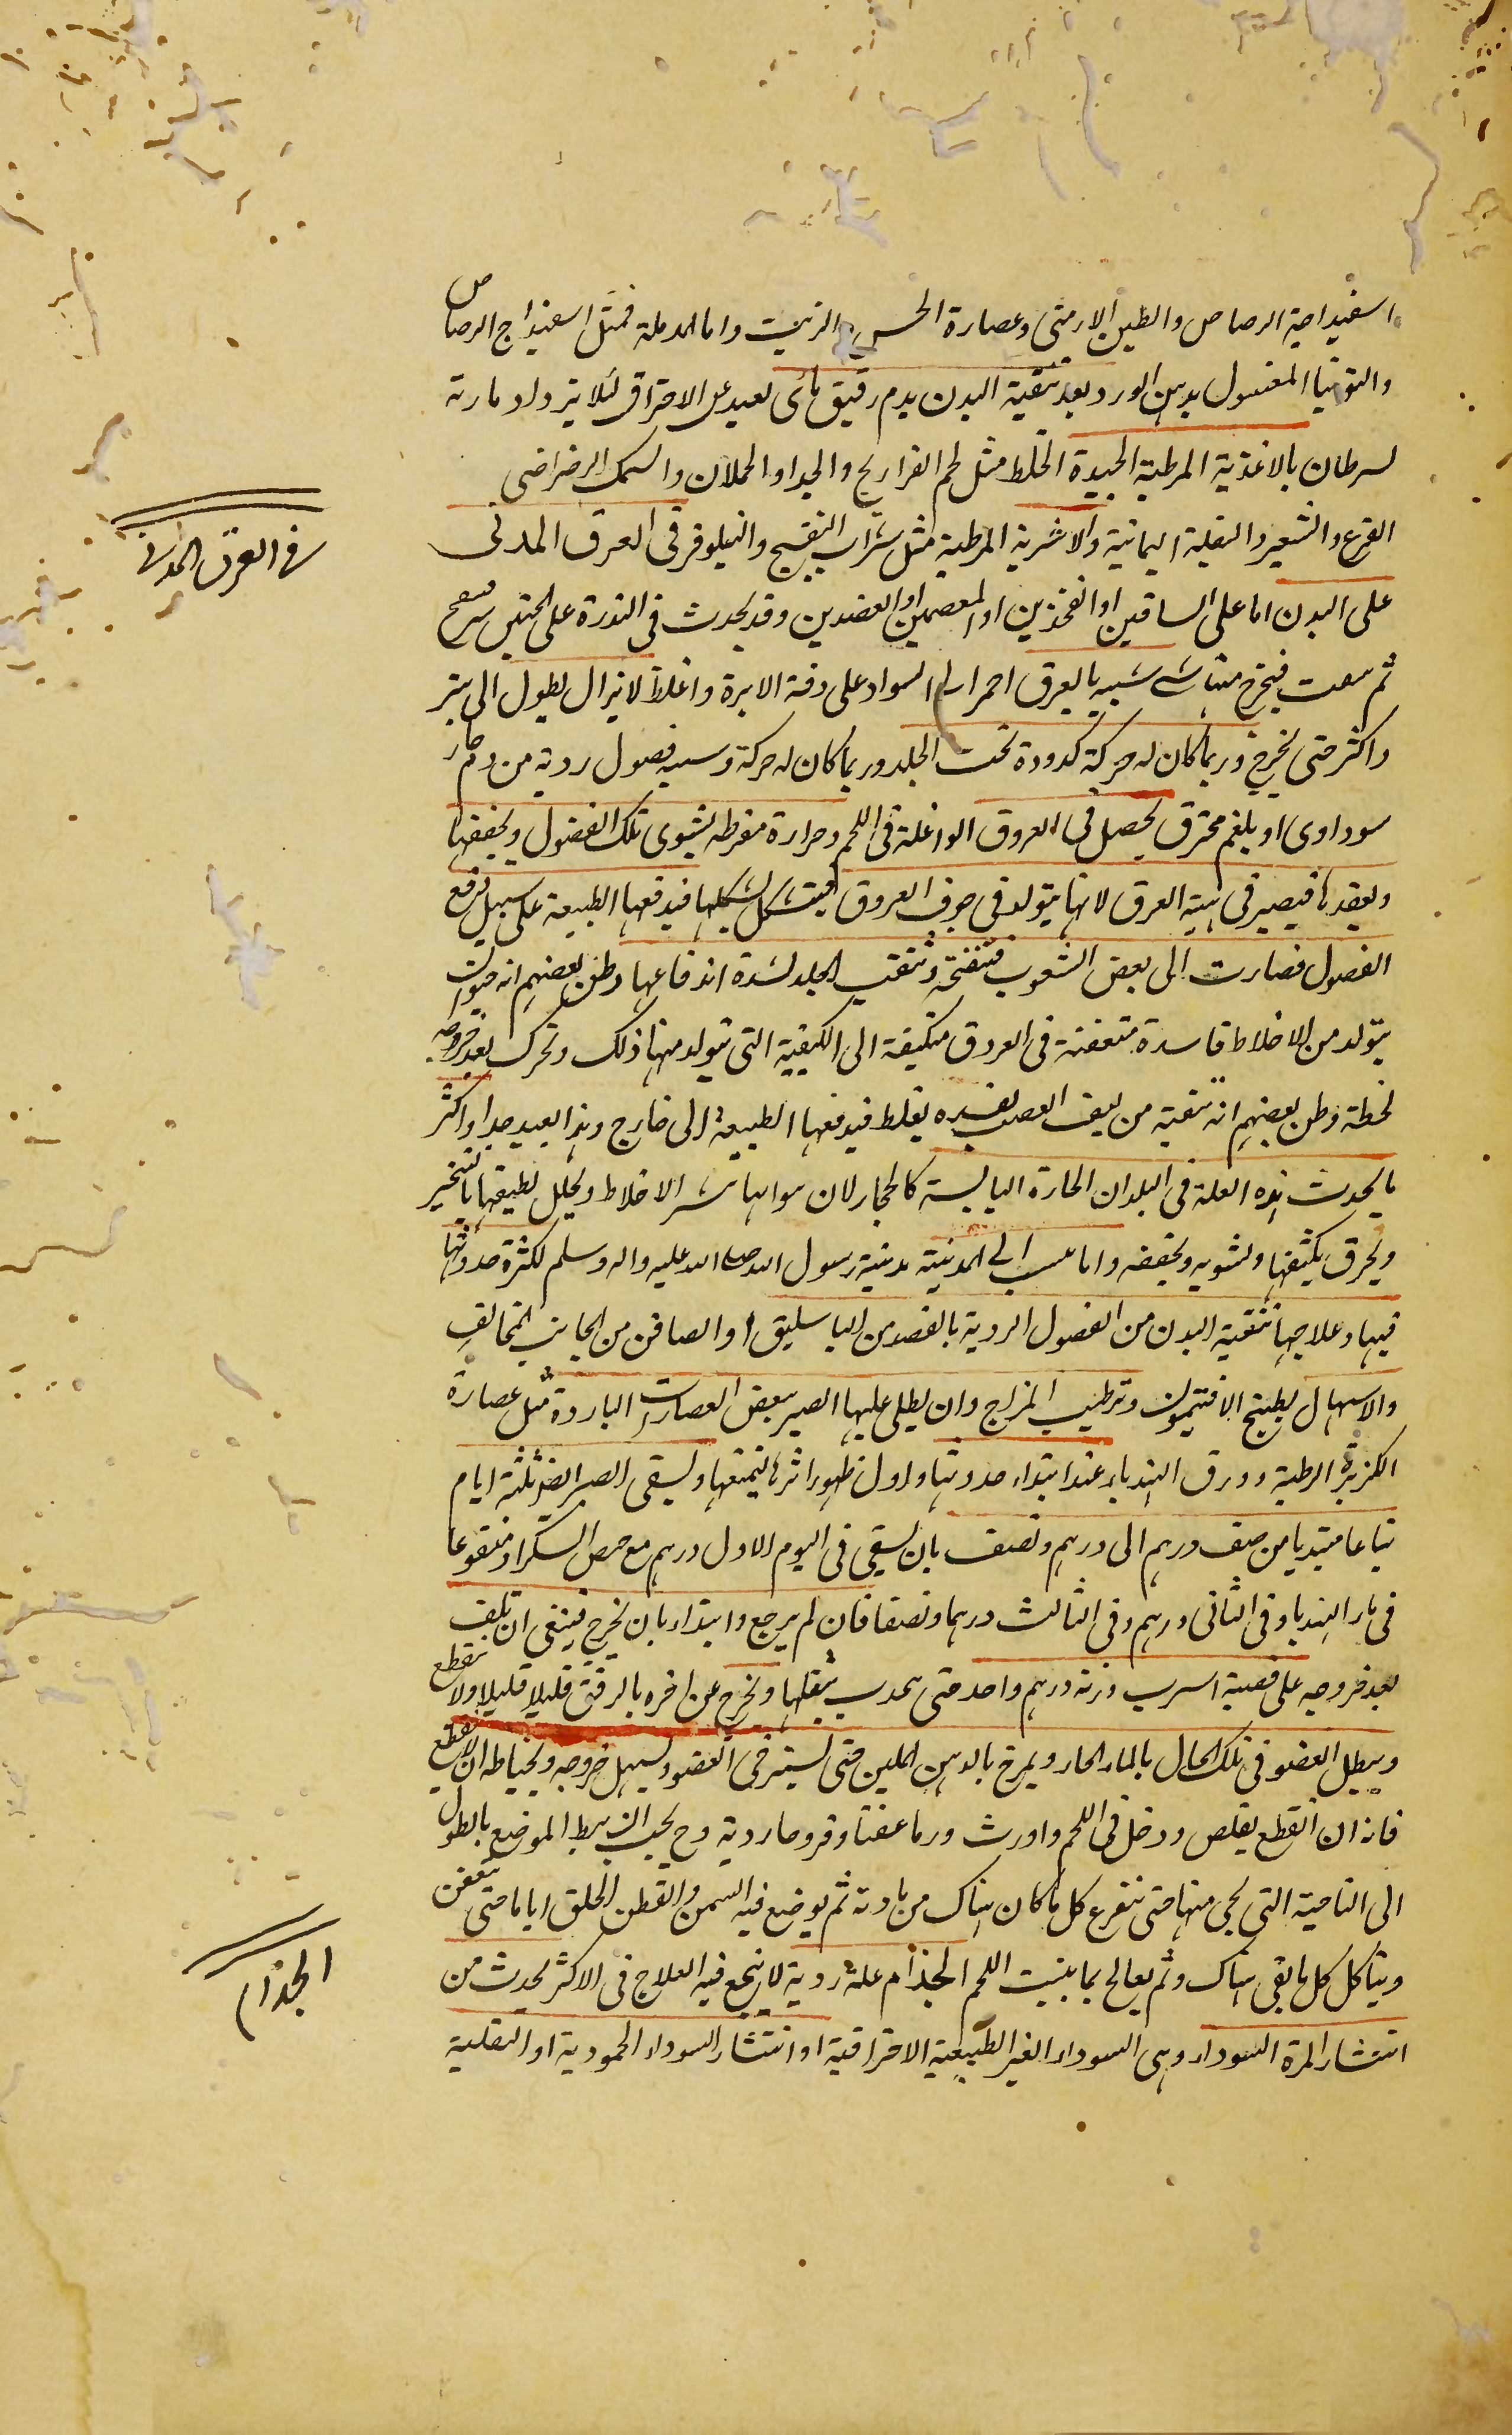 اسفيداجية الرصاص والطين الارمنى وعصارة الخس والزيت واما المدملة فمثل اسفيداج الرصاص
والتوتيا المغسول بدهن الورد بعد تنقية البدن بدم رقيق مائى بعيد عن الاحتراق لئلا يزداد مادته
لسرطان بالاغذية المرطبة الجيدة الخلط مثل لحم الفراريج والجداء والحملان والسمك الرضراضى
القرع والشعير والبقلة اليمانية والاشربة المرطبة مثل شراب البنفسج والنيلوفر فى العرق المدنى
فى العرق المدنى
على البدن اما على الساقين او الفخذين او المعصمين او العضدين وقد يحدث فى الندرة على الجنبين
ثم فيخرج منها شئ شبيه بالعرق احمر الى السواد على دقة الابرة واغلظ لا يزال يطول الى شبر
واكثر حتى يخرج وربما كان له حركة كدودة تحت الجلد وربما كان له حركة وسببه فضول ردية من دم حار
سوداوى او بلغم محترق يحصل فى العروق الواغلة فى اللحم وحرارة مفرطه يشوى تلك الفضول ويجففها
ويعقدها فيصير فى هيئة العرق لانها يتولد فى جوف العروق فيتشكل بشكلها فيدفعها الطبيعة على سبيل دفع
الفضول فصارت الى بعض الشعوب فتنفتح وتثقب الجلد لشدة اندفاعها وظن بعضهم انه حيوان
يتولد من الاخلاط فاسدة متعفنة فى العروق متكيفة الى الكيفية التى يتولد منها ذلك وتحرك بعد خروجه
لحظة وظن بعضهم انه شعبة من ليف العصب يفسد يغلظ فيدفعها الطبيعة الى خارج وهذا بعيد جدا واكثر
ما يحدث هذه العلة فى البلدان الحارة اليابسة كالحجاز لان هوائها الاخلاط ويحلل لطيفها بالتبخير
ويحرق كثيفها ويشويه ويجففه وانما الى المدينة مدينة رسول الله صلى الله عليه واله وسلم لكثرة حدوثها
فيها وعلاجها تنقية البدن من الفضول الردية بالفصد من الباسليق او الصافن من الجانب المخالف
والاسهال بطبيخ الافتيمون وترطيب المزاج وان يطلى عليها الصبر ببعض العصارات الباردة مثل عصارة
الكزبرة الرطبة وورق الهندباء عند ابتداء حدوثها واول ظهور اثرها ليمنعها ويسقى الصبر ايضا ثلثة ايام
تباعا مبتديا من نصف درهم الى درهم ونصف بان يسقى فى اليوم الاول درهم مع السكر او منقوعا
فى ماء الهندبا وفى الثانى درهم وفى الثالث درهما ونصفا فان لم يرجع وابتداء بان يخرج فينبغى ان تلف
بعد خروجه على قصبة اسرب وزنه درهم واحد حتى بثقلها ويخرج عن اخره بالرفق قليلا قليلا ولا ينقطع
ويبطل العضو فى تلك الحال بالماء الحار ويمرخ بالدهن الملين حتى يسترخى العضو ويسهل خروجه ويحتاط ان لا ينقطع
فانه ان انقطع تقلص ودخل فى اللحم واورث ورما عفنا وقروحا ردية وح يجب ان يبط الموضع بالطول
الى الناحية التى يجى منها حتى تتفرغ كل ما كان هناك من مادته ثم يوضع فيه السمن والقطن الخلق اياما حتى يتعفن
ويتاكل كل ما بقى هناك وثم يعالج بما ينبت اللحم الجذام علة ردية لا ينجع فيه العلاج فى الاكثر يحدث من
الجذام
انتشار المرة السوداء وهى السوداء الغير الطبيعية الاحتراقية او انتشار السوداء الجمودية او الثفلية